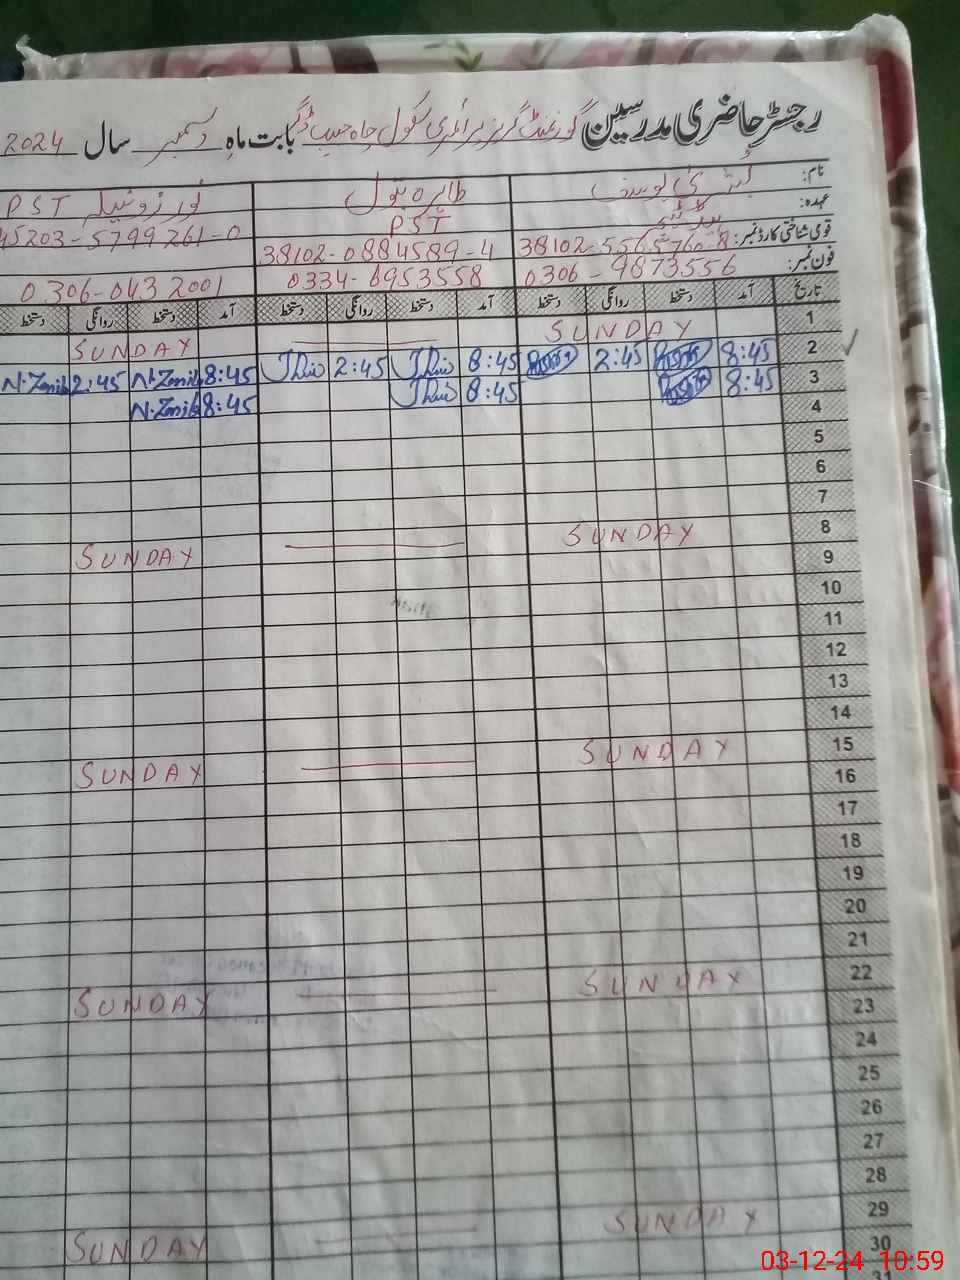 رجسٹر حاضری مدرسین گورنمنٹ گرلز پرائمری سکول چاہ حبیب ڈگر بابت ماہِ دسمبر سال 2024
نام: بشریٰ یوسف طاہرہ بتول PST
عہدہ: PST
قومی شناختی کارڈ نمبر: 38102-5565760-8 38102-0884589-4 45203-5799261-0
فون نمبر: 0306-9873556 0334-6953558 0306-0432001
تاریخ آمد دستخط روانگی دستخط آمد دستخط روانگی دستخط آمد دستخط روانگی دستخط
1 SUNDAY SUNDAY
2 8:45 2:45 8:45 2:45 8:45 N.Zonib 2:45 N.Zonib
3 8:45 8:45 8:45 N.Zonib
4
5
6
7
8 SUNDAY SUNDAY
9
10
11
12
13
14
15 SUNDAY SUNDAY
16
17
18
19
20
21
22 SUNDAY SUNDAY
23
24
25
26
27
28
29 SUNDAY SUNDAY
30
31
03-12-24 10:59